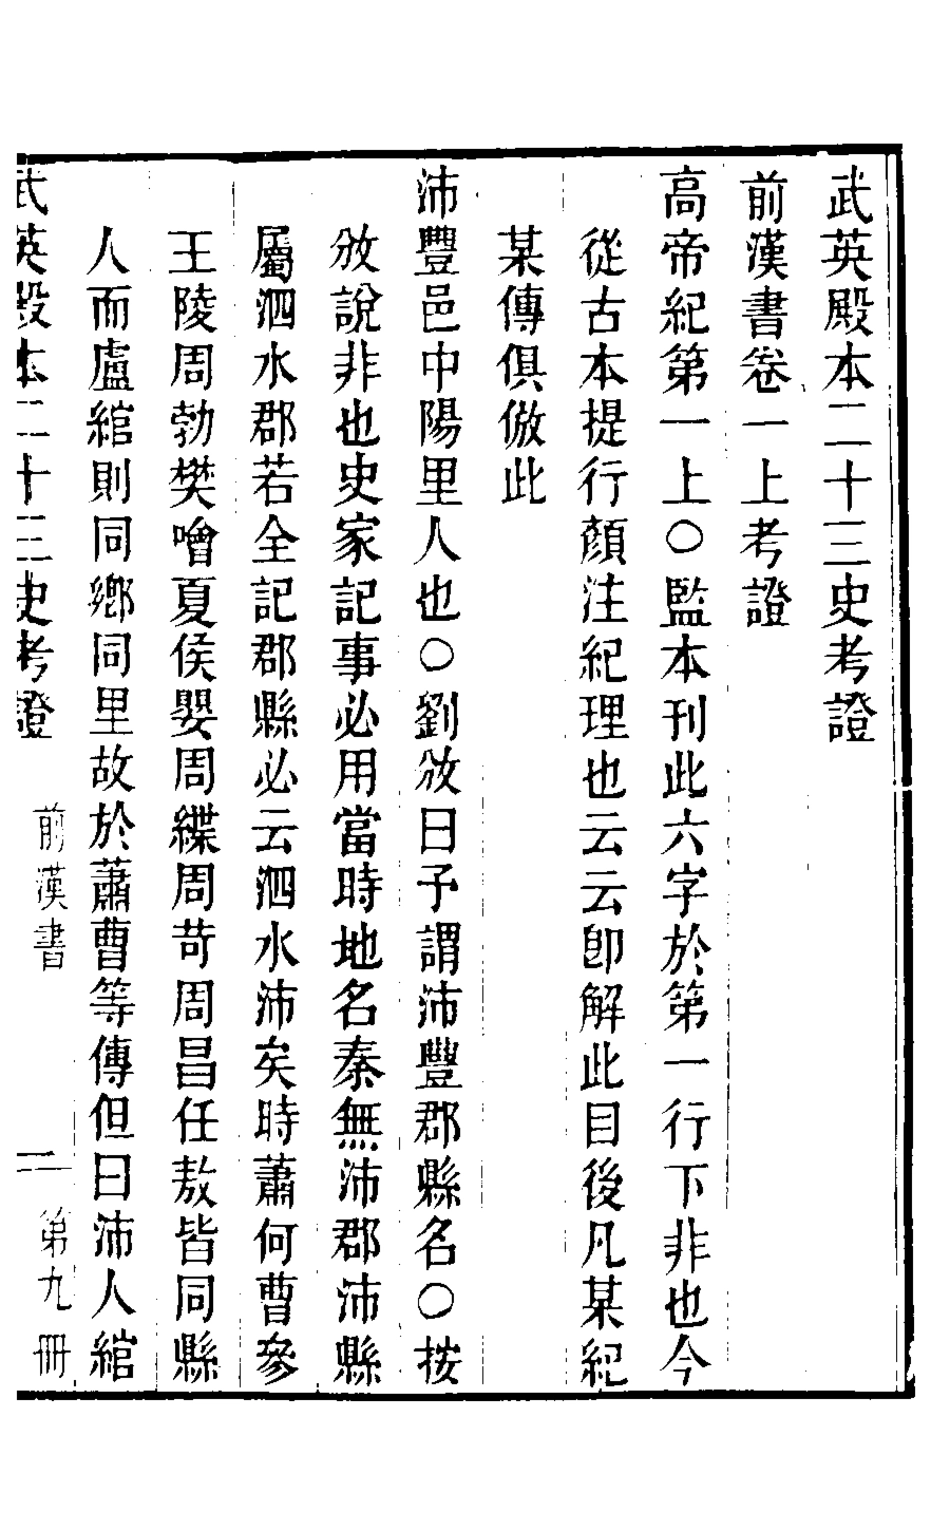 武英殿本二十三史考證
前漢書卷一上考證
高帝紀第一上○監本刊此六字於第一行下非也今
從古本提行顏注紀理也云云卽解此目後凡某紀
某傳俱倣此
沛豐邑中陽里人也○劉攽曰予謂沛豐郡縣名○按
攽說非也史家記事必用當時地名秦無沛郡沛縣
屬泗水郡若全記郡縣必云泗水沛矣時蕭何曹參
王陵周勃樊噲夏侯嬰周緤周苛周昌任敖皆同縣
人而盧綰則同鄉同里故於蕭曹等傳但曰沛人綰
武英殿本二十三史考證 前漢書 二 第九冊